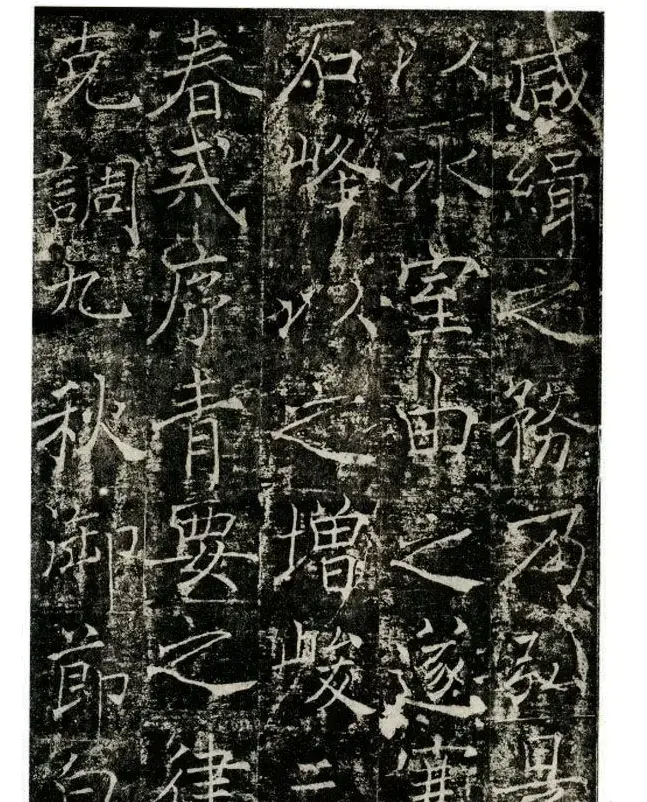 咸緝之務乃弘
以冰室由之遂
石峰以之增峻二
春戒序青要之律
克調九秋御節白